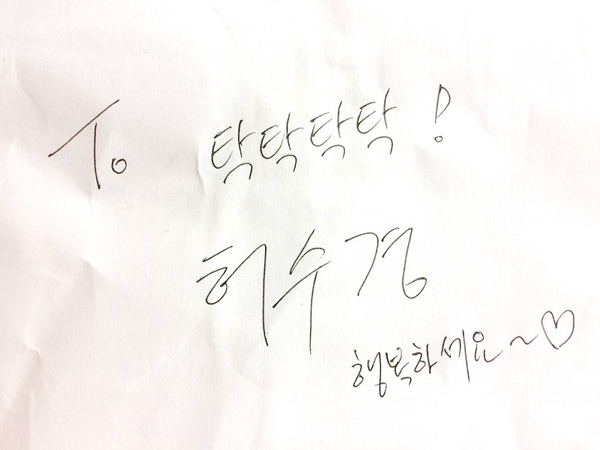 To 탁탁탁탁!
허수경
행복하세요~♡